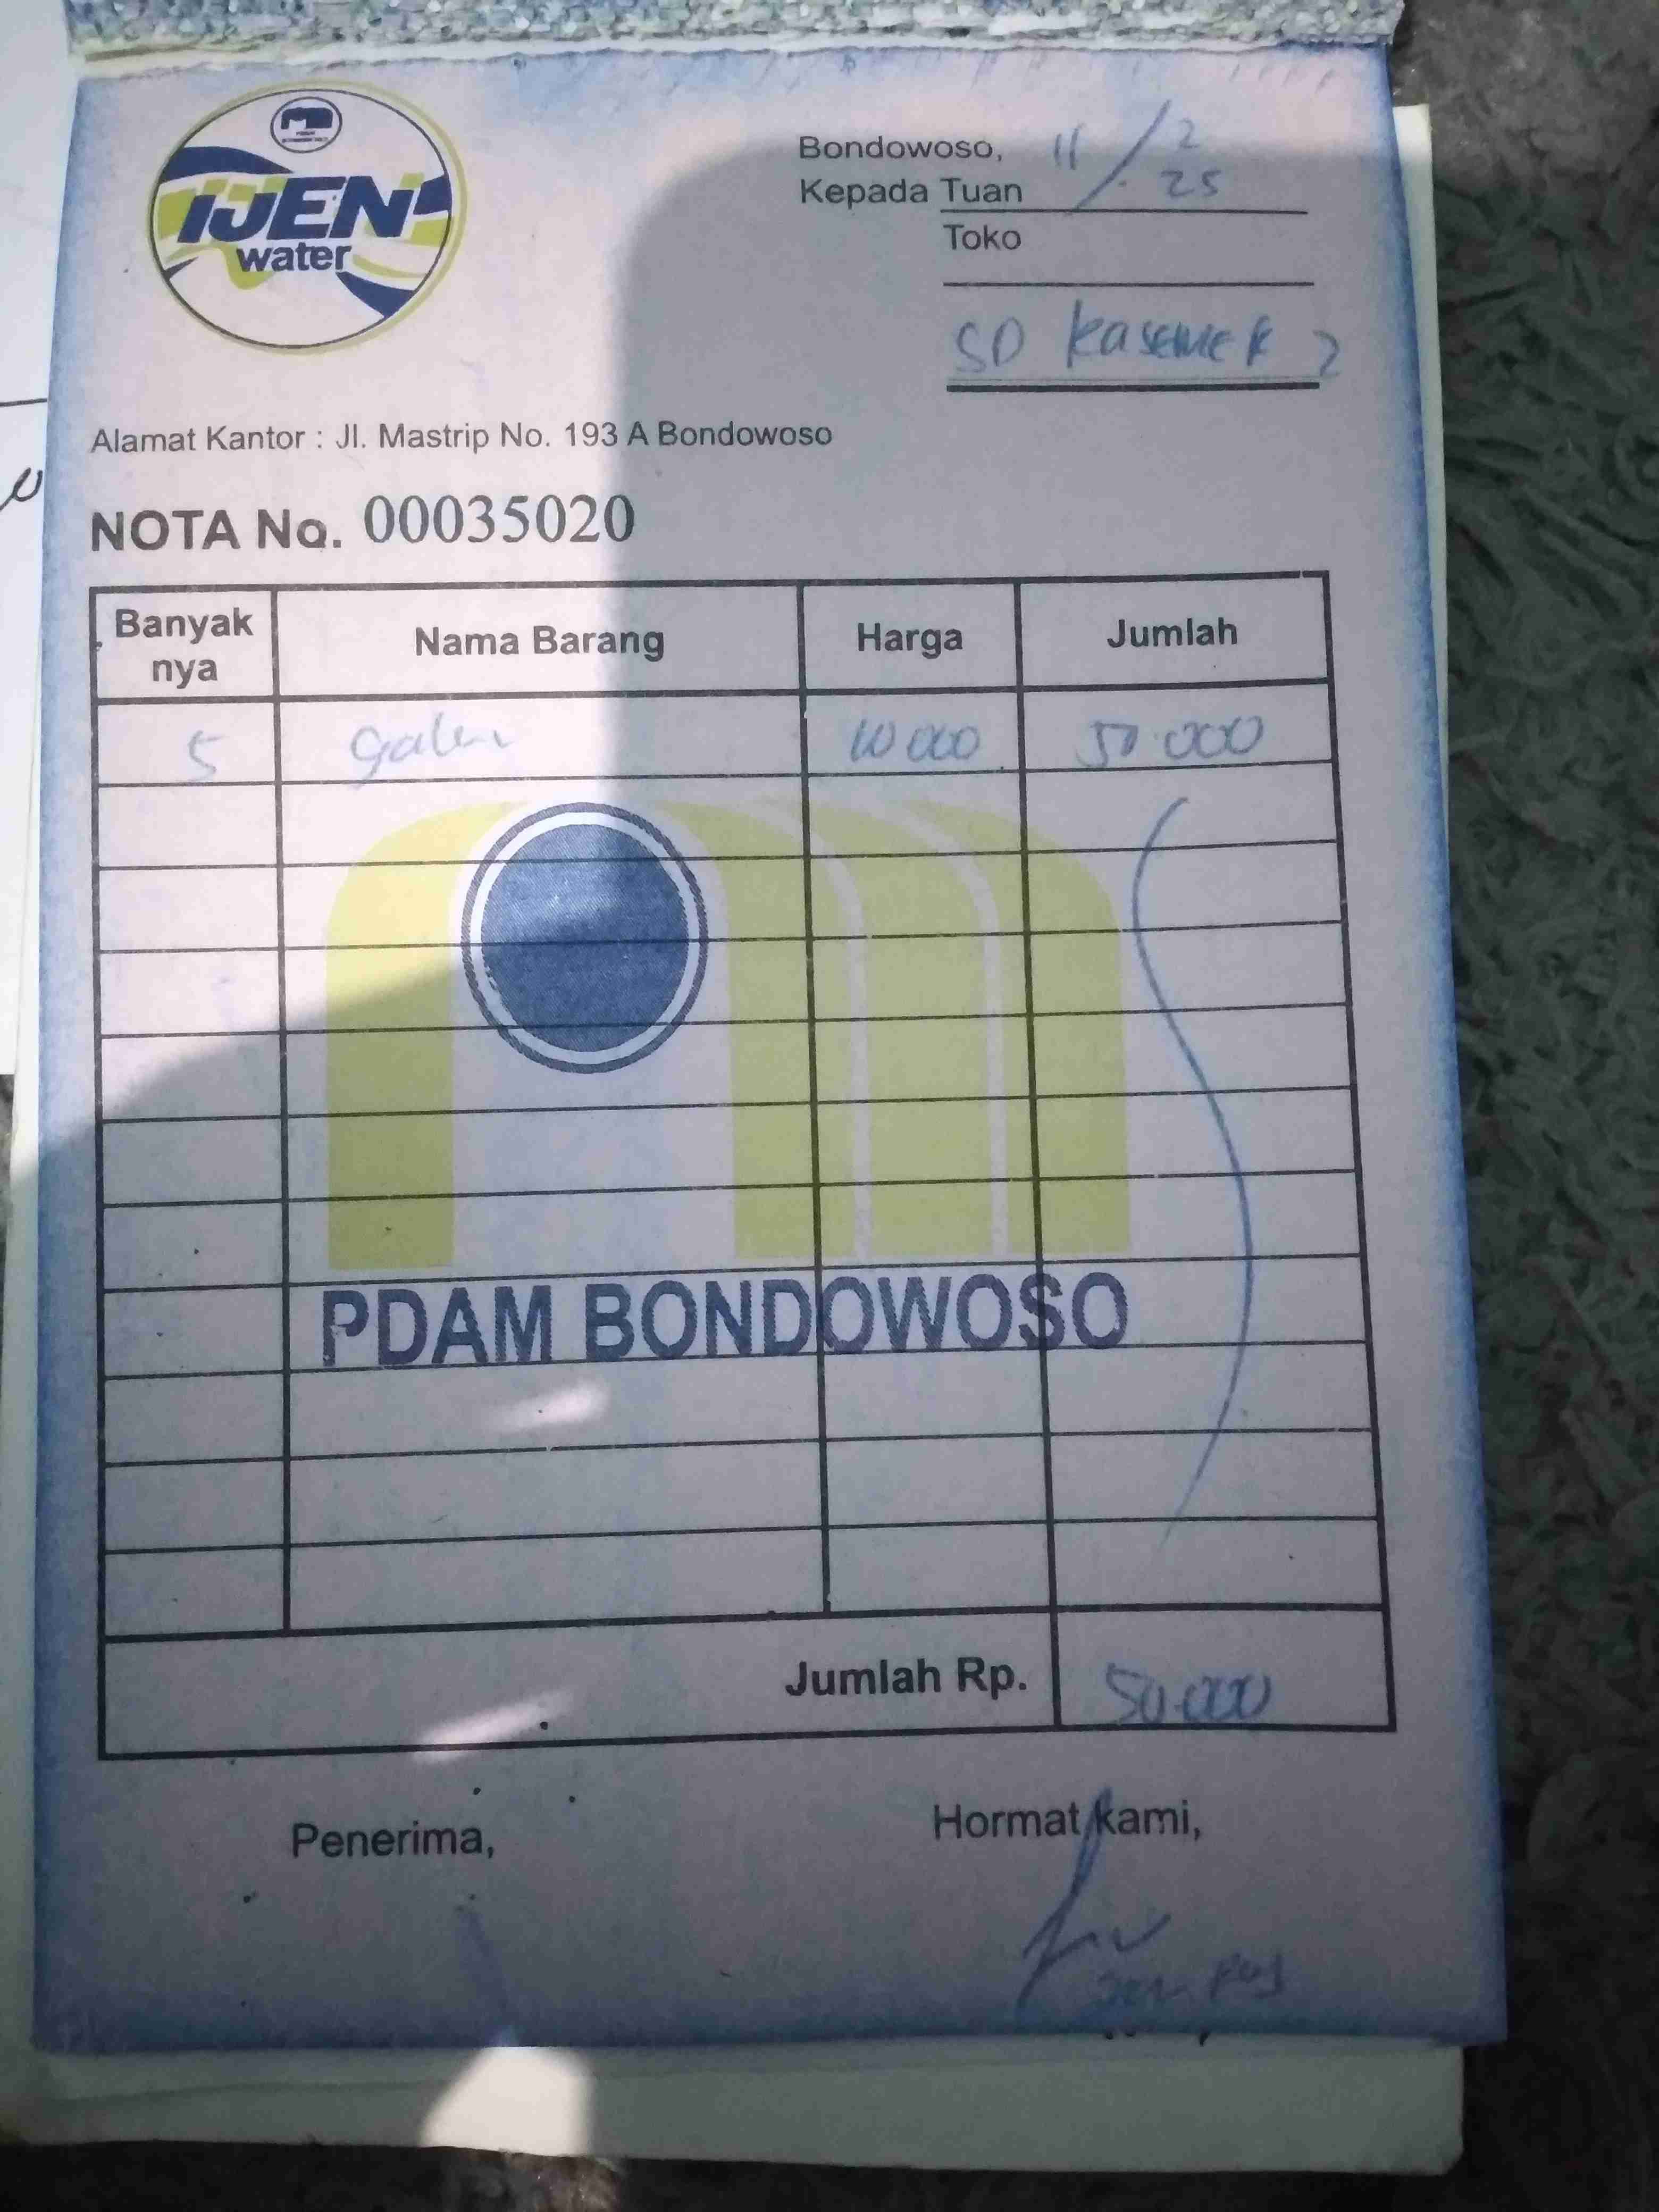 IJEN
water
Bondowoso, 11/2
25
Kepada Tuan
Toko
SD Kasemek 2
Alamat Kantor : Jl. Mastrip No. 193 A Bondowoso
NOTA No. 00035020
Banyak nya Nama Barang Harga Jumlah
5 galon 10 000 50.000
PDAM BONDOWOSO
Jumlah Rp. 50.000
Penerima, Hormat kami,